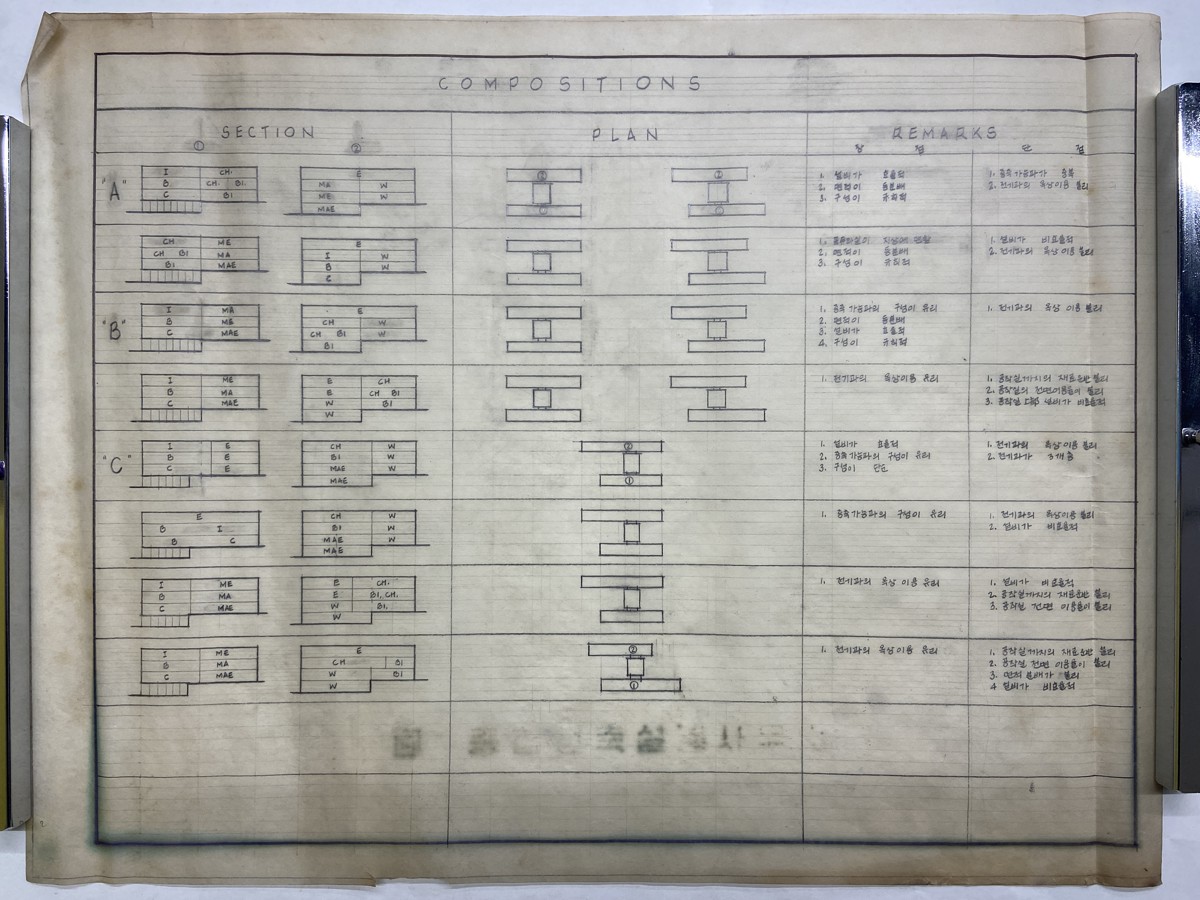 COMPOSITIONS
SECTION PLAN REMARKS
① ② 장 점 단 점
"A"
I CH.
B CH. BI.
C BI
E
MA W
ME W
MAE
② ②
① ①
1. 설비가 효율적
2. 면적이 등분배
3. 구성이 규칙적
2. 전기과의 옥상이용 불리
CH ME
CH BI MA
BI MAE
E
I W
B W
C
2. 면적이 등분배
3. 구성이 규칙적
1. 설비가 비효율적
2. 전기과의 옥상이용 불리
"B"
I MA
B ME
C MAE
E
CH W
CH BI W
BI
구성이 유리
2. 면적이 등분배
3. 설비가 효율적
4. 구성이 규칙적
1. 전기과의 옥상 이용 불리
I ME
B MA
C MAE
E CH
E CH BI
W BI
W
1. 전기과의 옥상이용 유리
1. 공작실까지의 재료운반 불리
2. 공작실의 전면이용률이 불리
3. 공작실 설비가 비효율적
"C"
I E
B E
C E
CH W
BI W
MAE W
MAE
②
①
1. 설비가 효율적
2. 구성이 유리
3. 구성이 단순
1. 전기과의 옥상이용 불리
2. 전기과가 3개층
E
B I
B C
CH W
BI W
MAE W
MAE
1. 구성이 유리
1. 전기과의 옥상이용 불리
2. 설비가 비효율적
I ME
B MA
C MAE
E CH.
E BI, CH.
W BI,
W
1. 전기과의 옥상 이용 유리
1. 설비가 비효율적
2. 공작실까지의 재료운반 불리
3. 공작실 전면 이용률이 불리
I ME
B MA
C MAE
E
CH BI
W BI
W
②
①
1. 전기과의 옥상이용 유리
1. 공작실까지의 재료운반 불리
2. 공작실 전면 이용률이 불리
3. 면적 분배가 불리
4 설비가 비효율적